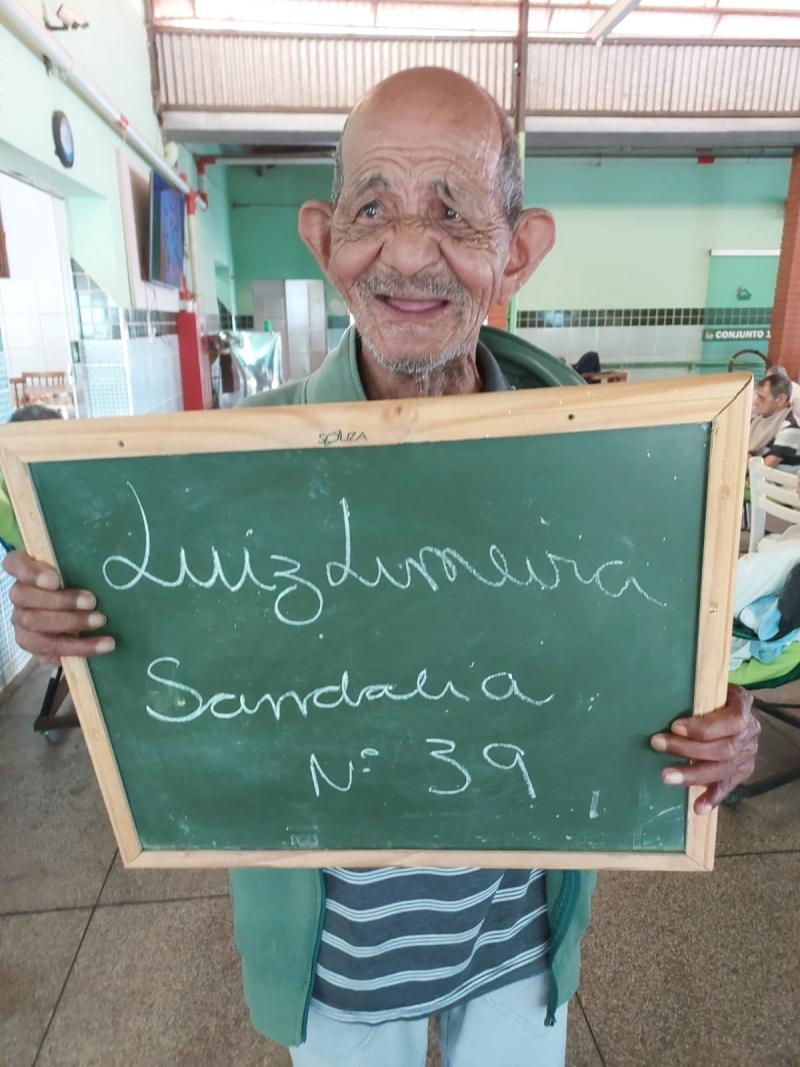 CONJUNTO 1
SOUZA
Luiz Limeira
Sandalia
Nº 39